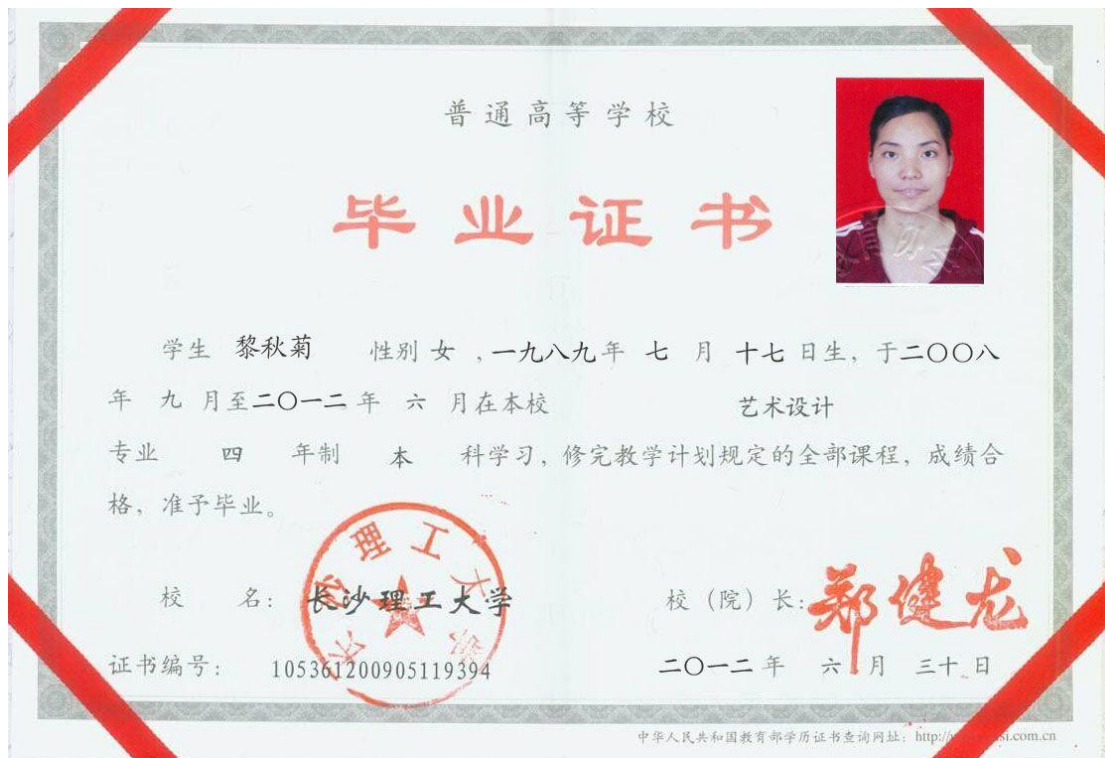 普通高等学校
毕业证书
学生 黎秋菊 性别 女 ，一九八九年 七 月 十七 日生，于二〇〇八
年 九 月至二〇一二 年 六 月在本校 艺术设计
专业 四 年制 本 科学习，修完教学计划规定的全部课程，成绩合
格，准予毕业。
校 名： 长沙理工大学 校（院）长：郑健龙
长沙理工大学
证书编号： 105361200905119394 二〇一二 年 六 月 三十 日
中华人民共和国教育部学历证书查询网址：